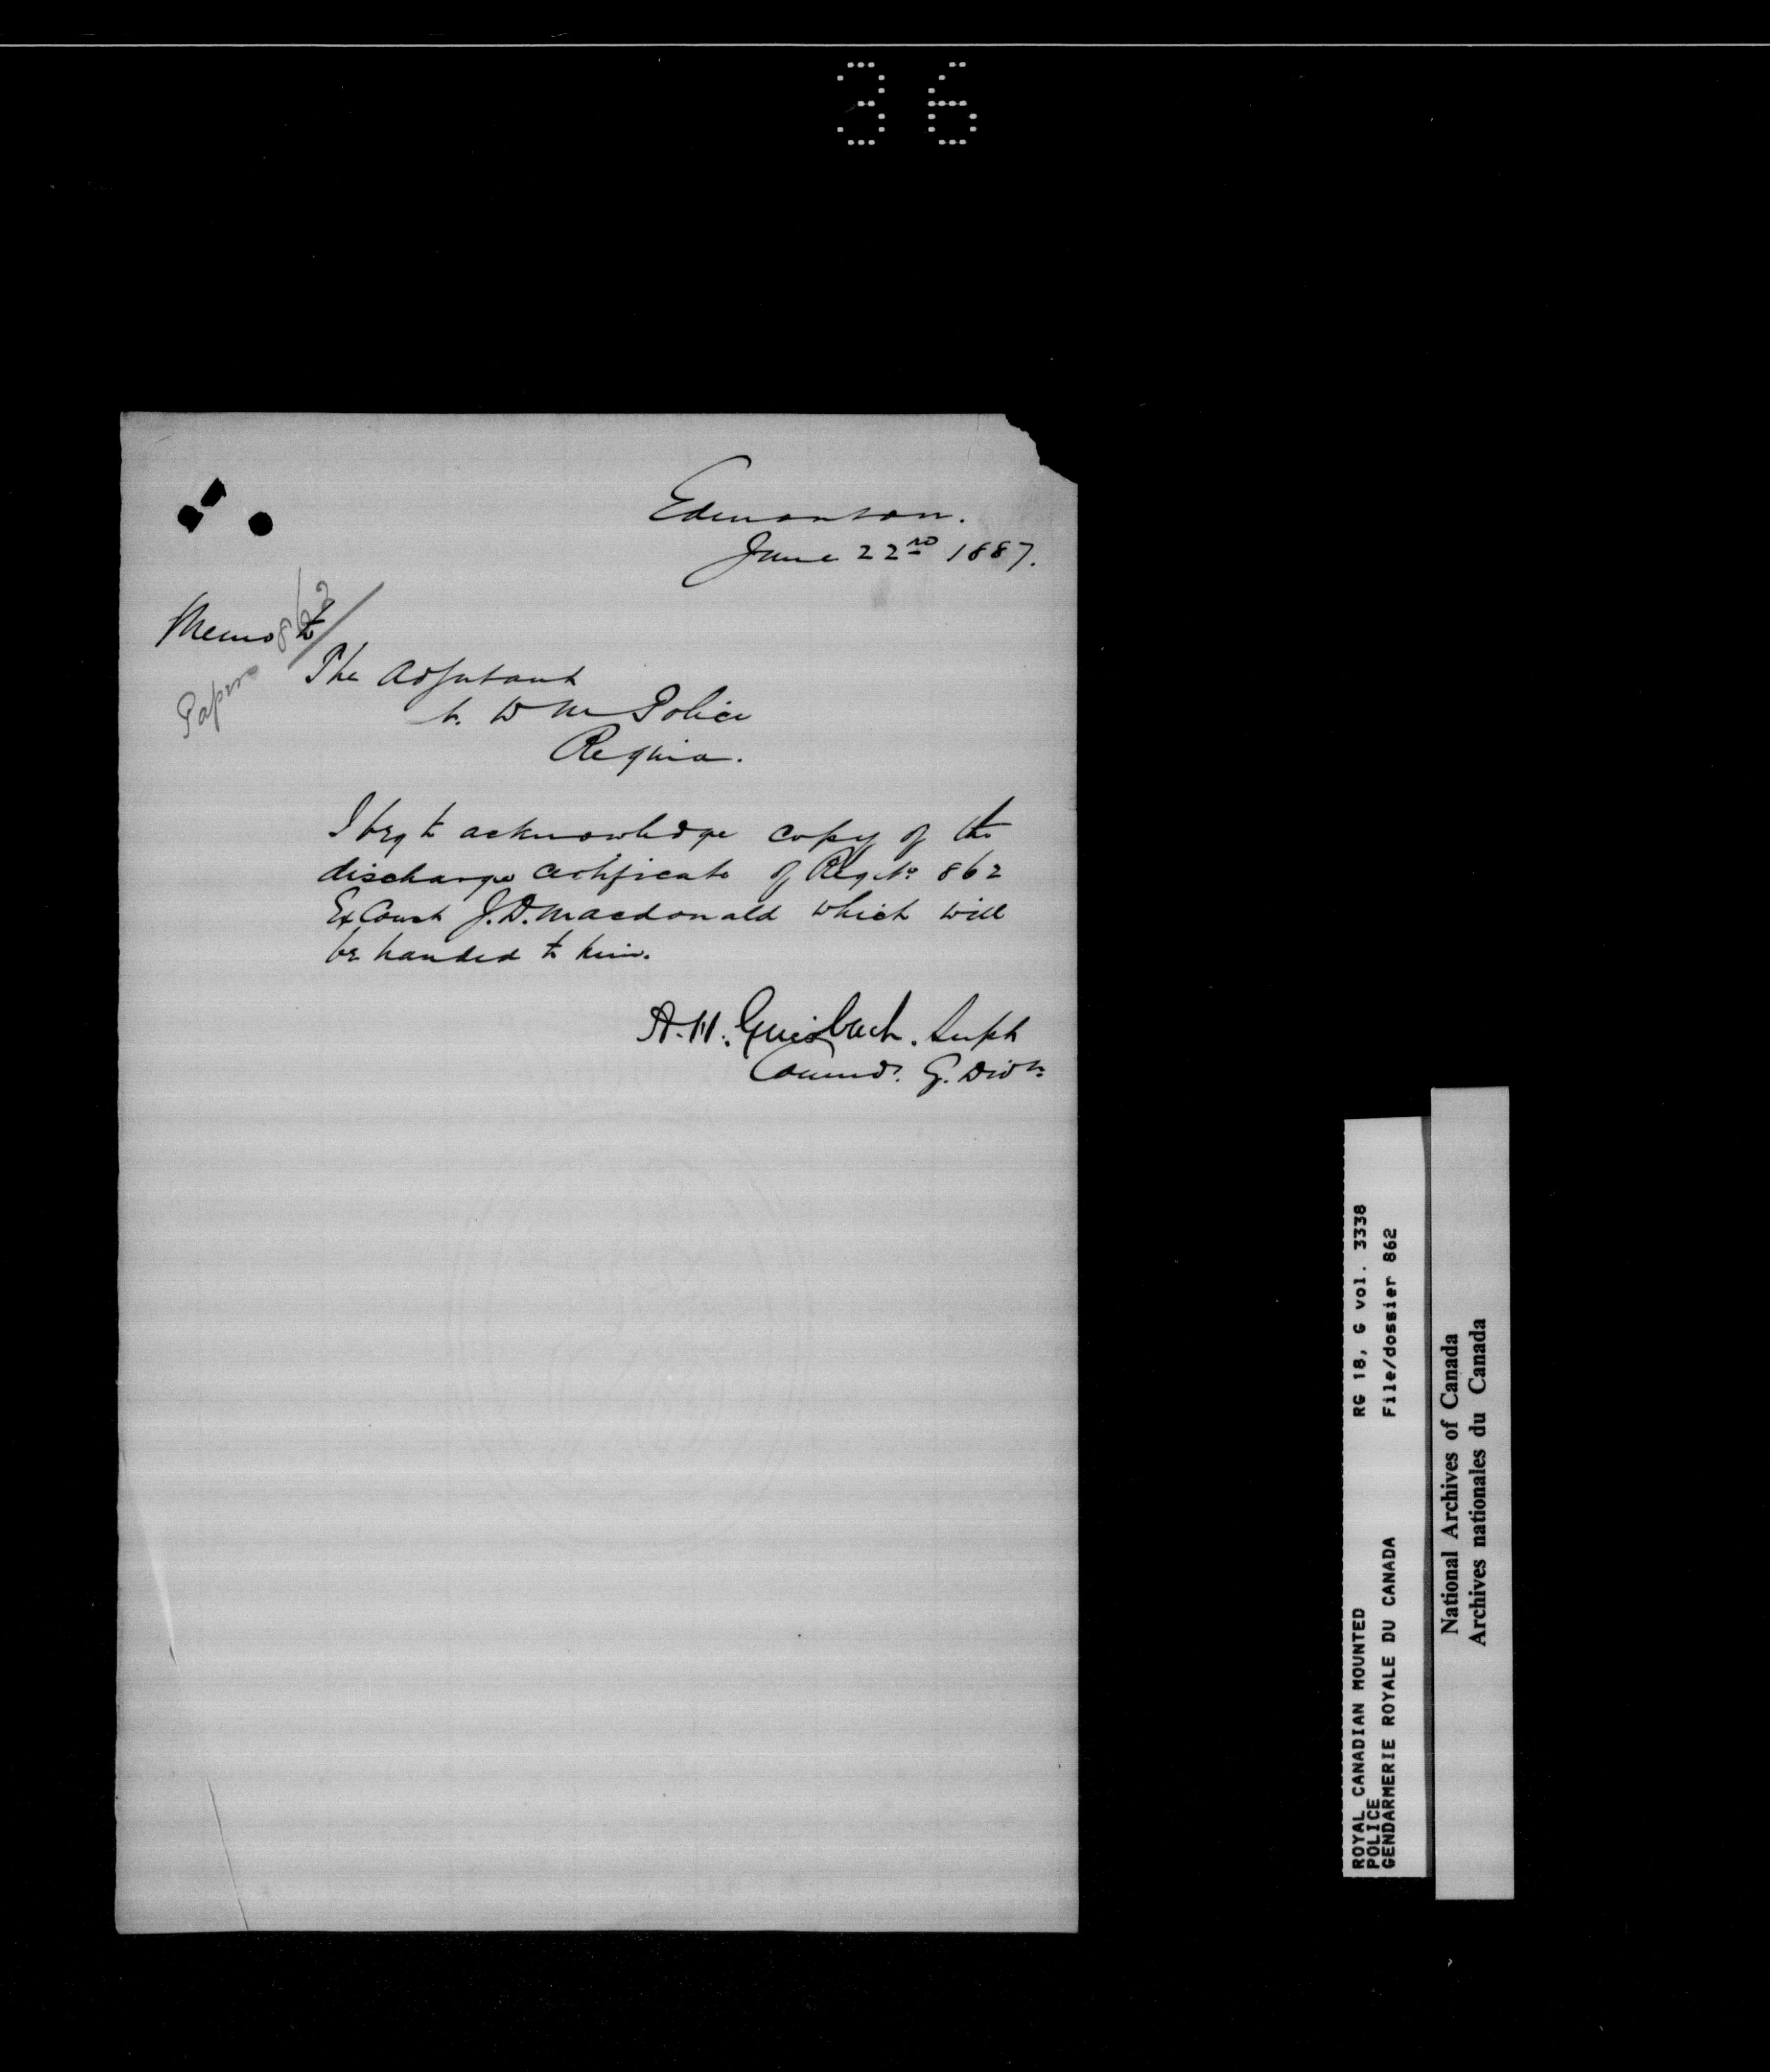 36
Edmonton.
June 22nd 1887.
Memo to
862
Papers
The Adjutant
N. W M Police
Regina.
I beg to acknowledge copy of the
discharge certificate of Reg. No 862
Ex Const J.D. Macdonald which will
be handed to him.
A.H. Griesbach. Supt
Commdg. G. Divn
ROYAL CANADIAN MOUNTED RG 18, G vol. 3338
POLICE
GENDARMERIE ROYALE DU CANADA File/dossier 862
National Archives of Canada
Archives nationales du Canada